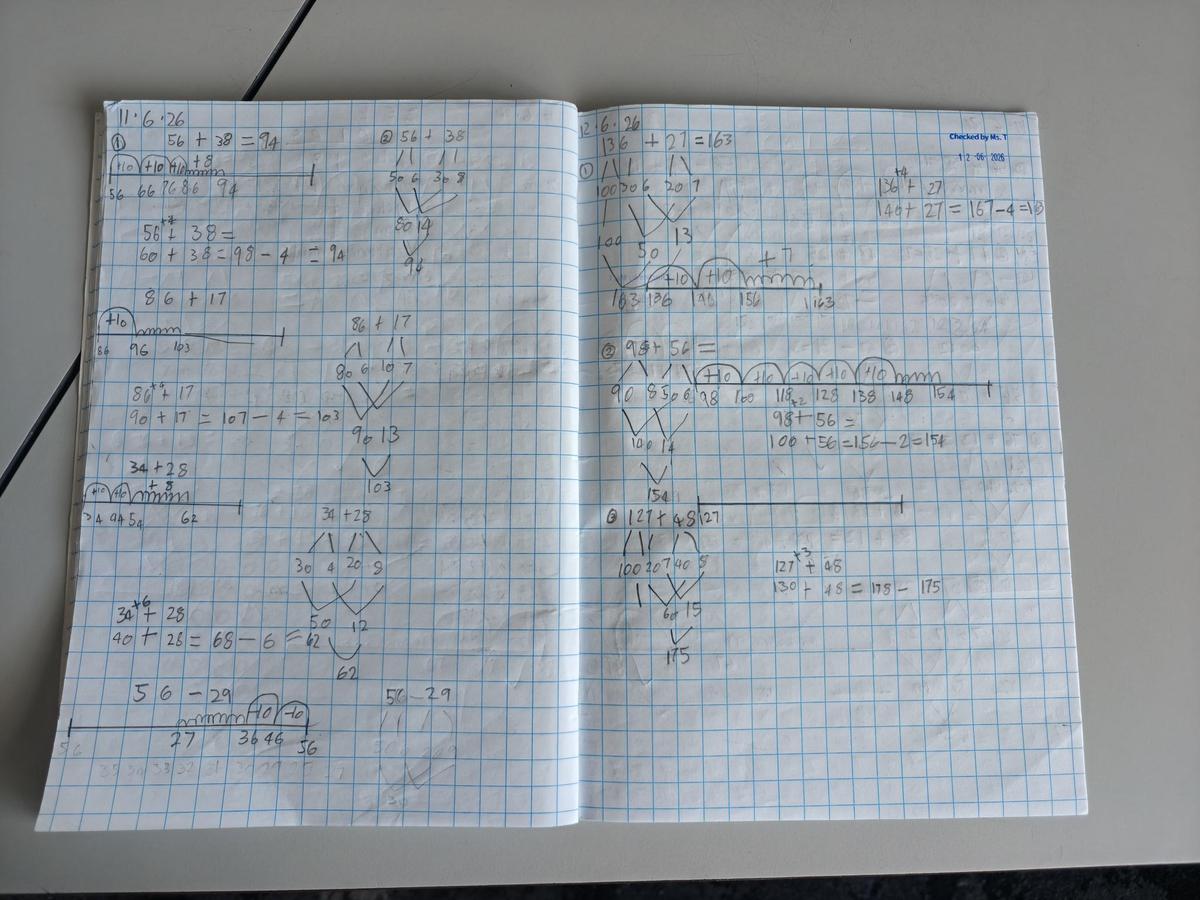 11·6·26
① 56 + 38 = 94
+10 +10 +10 +8
56 66 76 86 94
56 + 38 =
60 + 38 = 98 - 4 = 94
② 56 + 38
50 6 30 8
80 14
94
86 + 17
+10
86 96 103
86 +4 + 17
90 + 17 = 107 - 4 = 103
86 + 17
80 6 10 7
90 13
103
34 + 28
+10 +10 + 8
34 44 54 62
34 +6 + 28
40 + 28 = 68 - 6 = 62
34 + 28
30 4 20 8
50 12
62
56 - 29
-10 -10
27 36 46 56
56 - 29
12·6·26
136 + 27 = 163
①
100 30 6 20 7
100 50 13
163
+10 +10 + 7
136 146 156 163
Checked by Ms. T
12 -06- 2026
136 +4 + 27
140 + 27 = 167 - 4 =
② 98 + 56 =
90 8 50 6
140 14
154
+10 +10 +10 +10 +10
98 118 128 138 148 154
+2
98 + 56 =
100 + 56 = 156 - 2 = 154
③ 127 + 48
127
100 20 7 40 8
60 15
175
127 +3 + 48
130 + 48 = 178 - 175